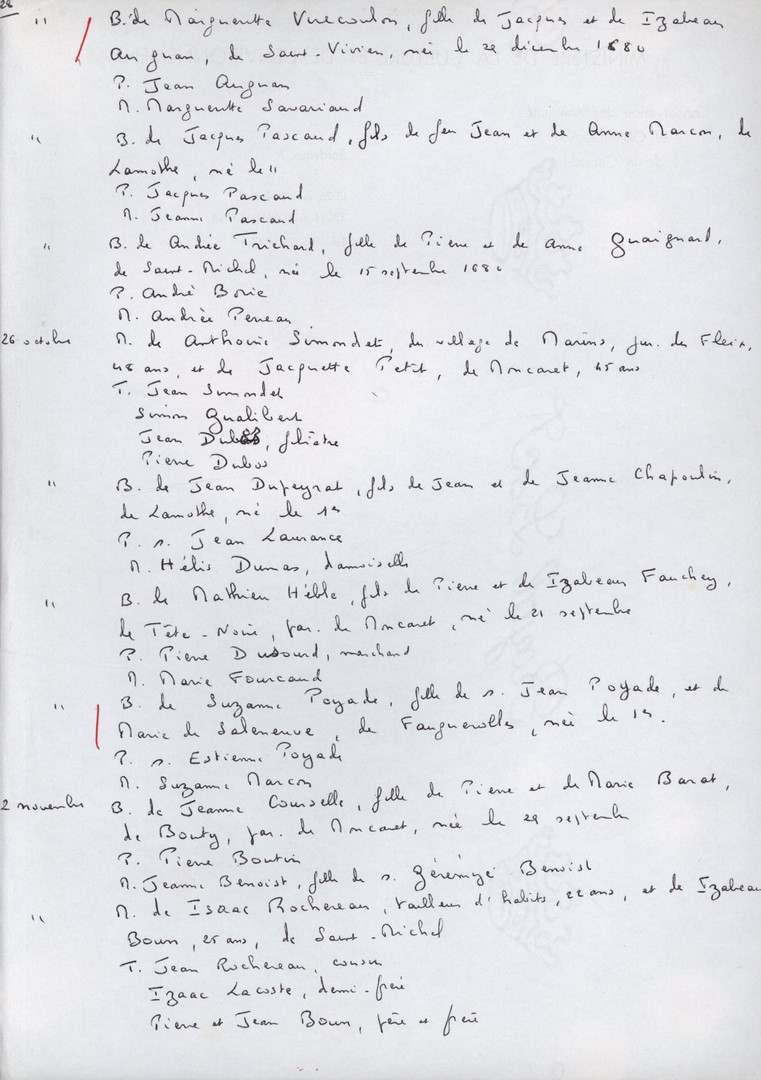 28
" B. de Marguerite Vurcoulon, fille de Jacques et de Izabeau
Augnan, de Saint-Vivien, née le 22 décembre 1680
P. Jean Augnan
M. Marguerite Savariaud
" B. de Jacques Pascaud, fils de feu Jean et de Anne Marcon, de
Lamothe, né le 11
P. Jacques Pascaud
M. Jeanne Pascaud
" B. de Andrée Trichard, fille de Pierre et de Anne Guaignard,
de Saint-Michel, née le 15 septembre 1680
P. André Borie
M. Andrée Peneau
26 octobre M. de Anthoine Simondet, du village de Marins, jur. du Fleix,
48 ans, et de Jacquette Petit, de Moncaret, 45 ans
T. Jean Simondet
Simon Gualibert
Jean Dubos, filiâtre
Pierre Dubos
" B. de Jean Dupeyrat, fils de Jean et de Jeanne Chapoulin,
de Lamothe, né le 14
P. s. Jean Laurance
M. Hélis Dumas, damoiselle
" B. de Mathieu Hèble, fils de Pierre et de Izabeau Fauchey,
de Tête-Noire, par. de Moncaret, né le 21 septembre
P. Pierre Dubourd, marchand
M. Marie Fourcaud
" B. de Suzanne Poyade, fille de s. Jean Poyade, et de
Marie de Saleneuve, de Fauguerolles, née le 14.
P. s. Estienne Poyade
M. Suzanne Marcon
2 novembre B. de Jeanne Courselle, fille de Pierre et de Marie Barat,
de Bouty, par. de Moncaret, née le 29 septembre
P. Pierre Boutin
M. Jeanne Benoist, fille de s. Gérémye Benoist
" M. de Isaac Rochereau, tailleur d'habits, 22 ans, et de Izabeau
Boun, 25 ans, de Saint-Michel
T. Jean Rochereau, cousin
Izaac Lacoste, demi-frère
Pierre et Jean Boun, père et frère